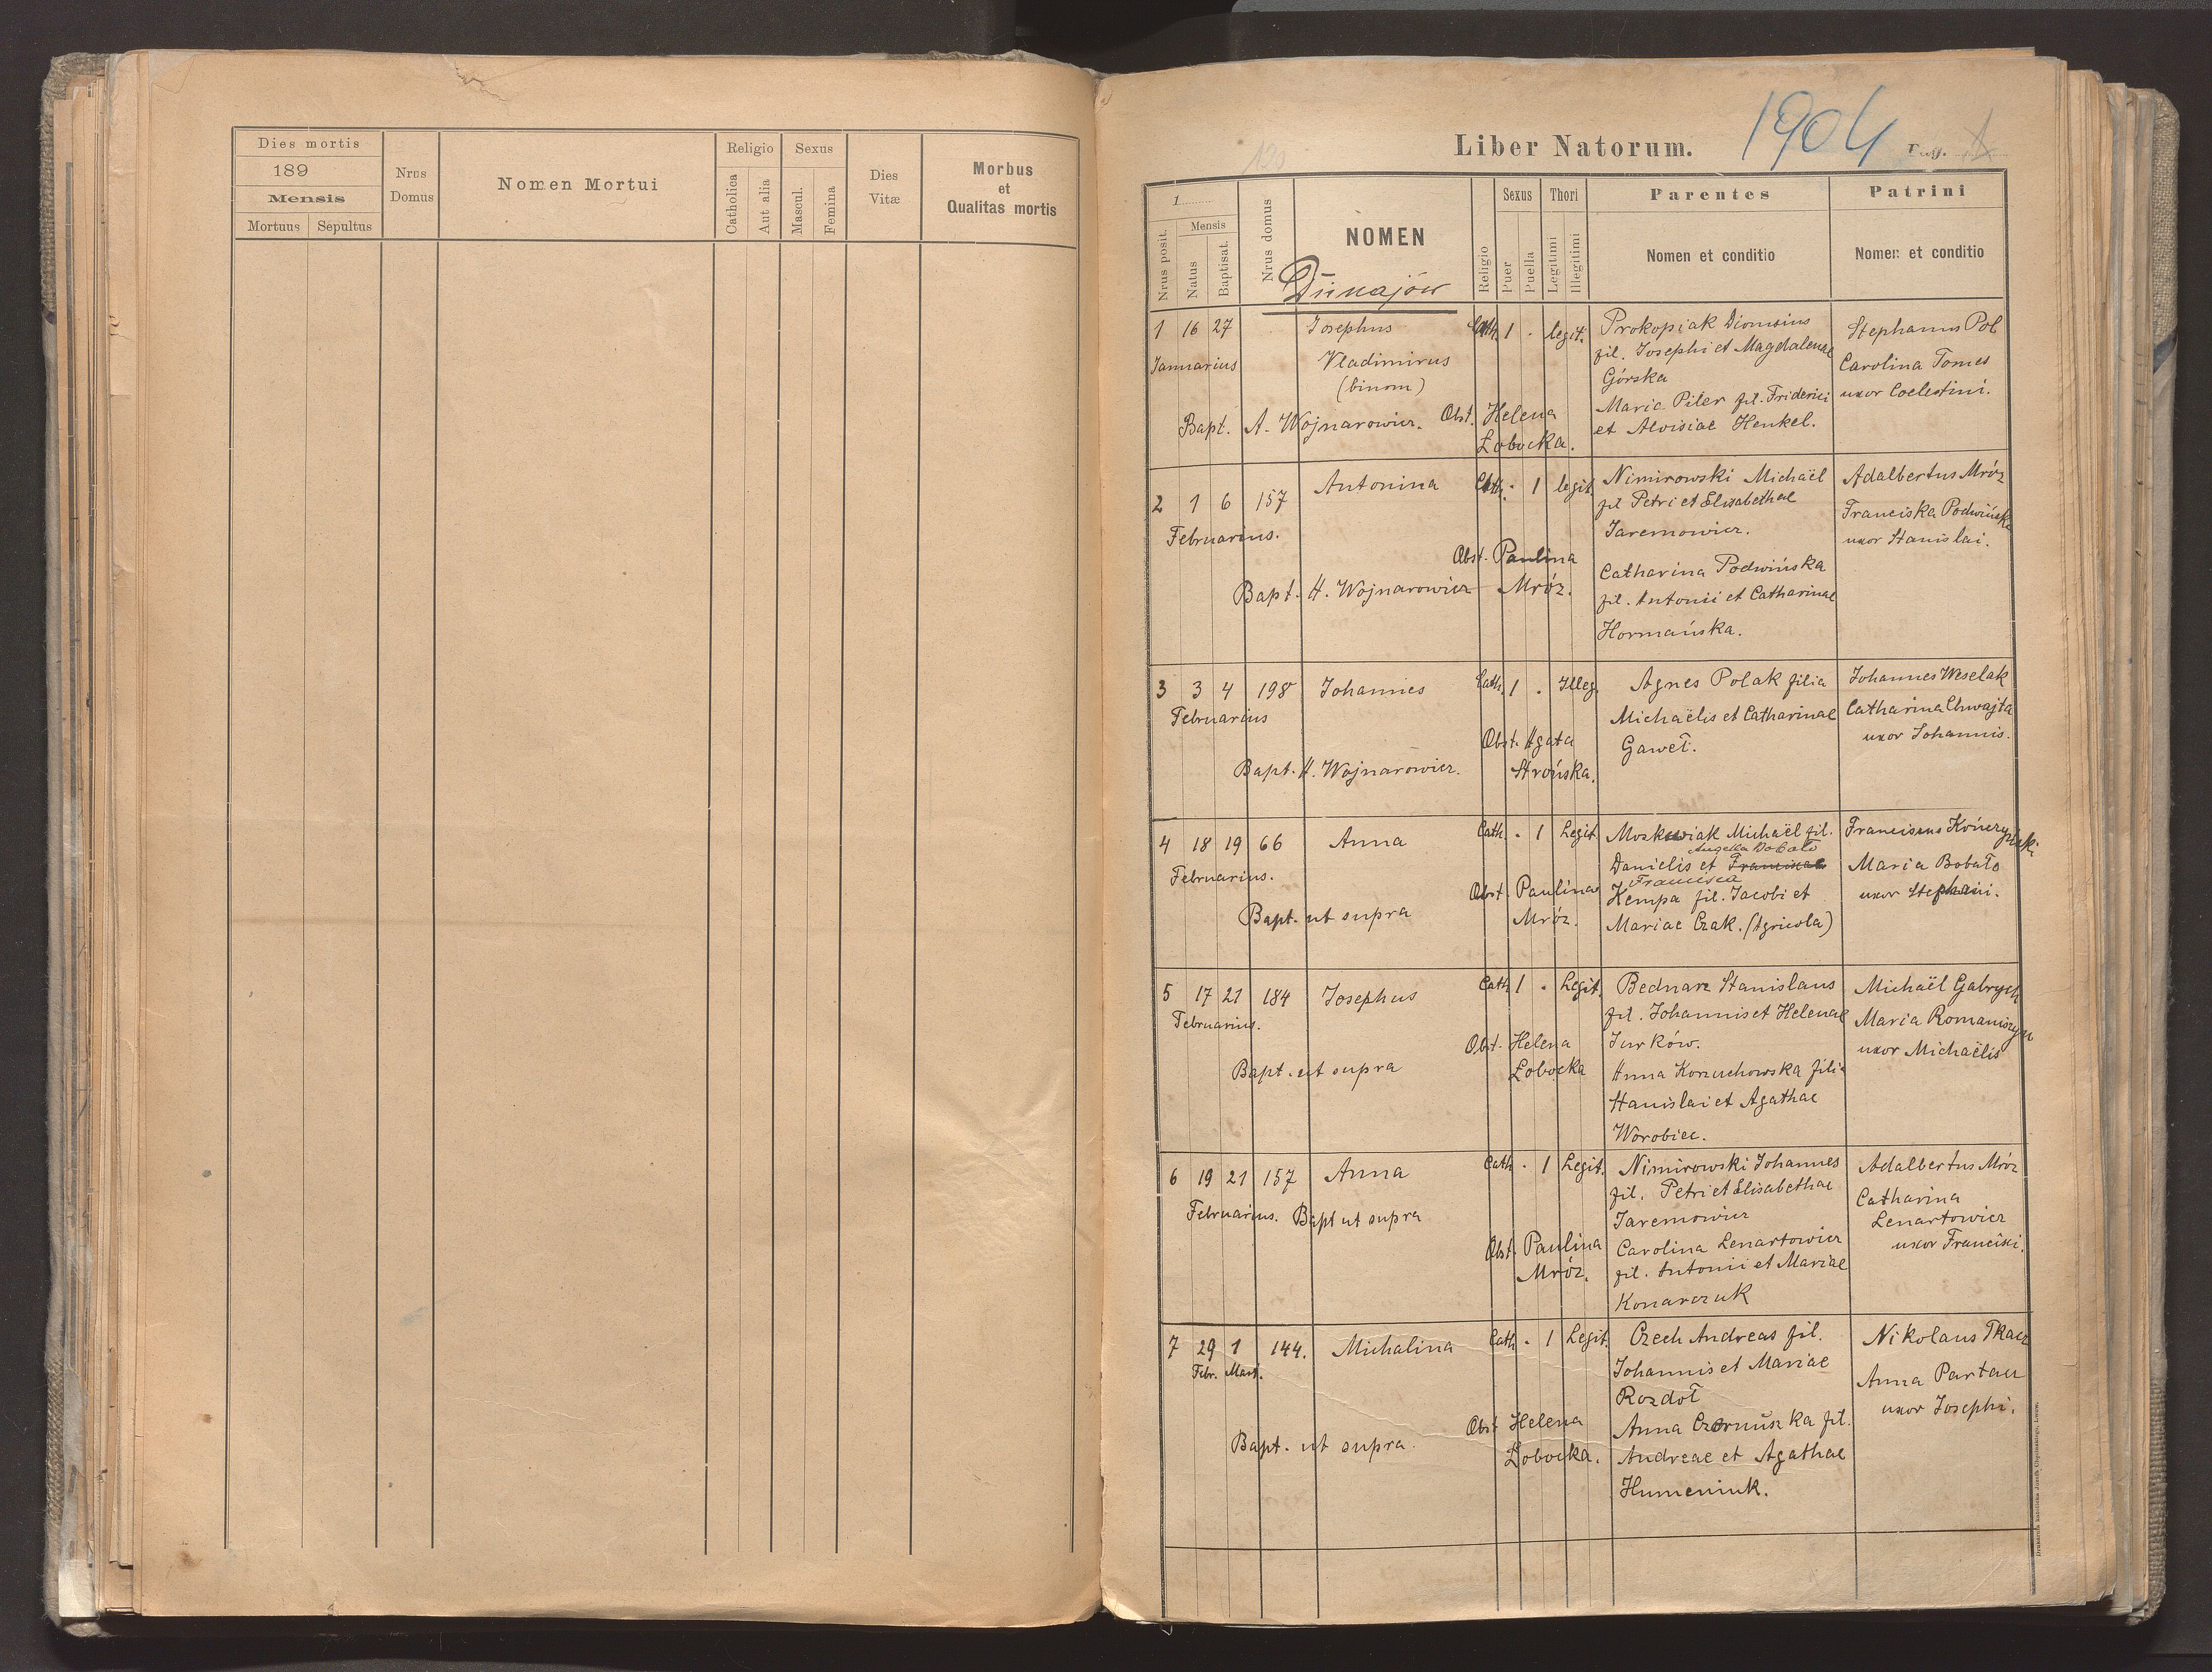 Dies mortis
189
Mensis
Mortuus Sepultus
Nrus Domus
Nomen Mortui
Religio
Catholica
Aut alia
Sexus
Mascul.
Femina
Dies Vitæ
Morbus
et
Qualitas mortis
120
Liber Natorum.
1904
Pag.
1
Nrus posit.
Mensis
Natus
Baptisat.
Nrus domus
NOMEN
Dunajów
Religio
Sexus
Puer
Puella
Thori
Legitimi
Illegitimi
Parentes
Nomen et conditio
Patrini
Nomen et conditio
1 16 27 Josephus Cath. 1 - legit. Prokopiak Dionisius Stephanus Pol
Januarius Vladimirus fil. Josephi et Magdalenae Carolina Tomes
(binom) Górska uxor Coelestini.
Bapt. A. Wojnarowicz. Obst. Helena Maria Piler fil. Friderici
Łobocka. et Aloisiae Henkel.
2 1 6 157 Antonina Cath. - 1 legit. Nimirowski Michaël Adalbertus Mróz
Februarius. fil Petri et Elisabethae Franciska Podwińska
Jaremowicz. uxor Stanislai.
Obst. Paulina Catharina Podwińska
Bapt. A. Wojnarowicz Mróz. fil. Antonii et Catharinae
Hormańska.
3 3 4 198 Johannes Cath. 1 - Illeg. Agnes Polak filia Johannes Weselak
Februarius Michaëlis et Catharinae Catharina Chwajta
Obst. Agata Gaweł. uxor Johannis.
Bapt. A. Wojnarowicz. Strońska.
4 18 19 66 Anna Cath. - 1 Legit. Moskwiak Michaël fil.
Angela Bobało
Februarius. Danielis et Franciscae Maria Bobało
Francisca
Obst. Paulina Kempa fil. Jacobi et uxor Stephani.
Bapt. ut supra Mróz. Mariae Czak. (Agricola)
5 17 21 184 Josephus Cath 1 - Legit. Bednarz Stanislaus Michaël Gabrych
Februarius. fil. Johannis et Helenae Maria Romaniszyn
Obst. Helena Jurków. uxor Michaëlis
Bapt. ut supra Łobocka Anna Konuchowska filia
Stanislai et Agathae
Worobiec.
6 19 21 157 Anna Cath - 1 Legit. Nimirowski Johannes Adalbertus Mróz
Februarius. Bapt ut supra fil. Petri et Elisabethae Catharina
Jaremowicz Lenartowicz
Obst. Paulina Carolina Lenartowicz uxor Francisci.
Mróz. fil. Antonii et Mariae
Konarczuk
7 29 1 144. Michalina Cath - 1 Legit. Czech Andreas fil. Nikolaus Tkacz
Febr. Mart. Johannis et Mariae Anna Partau
Rozdoł uxor Josephi.
Obst Helena Anna Czornuszka fil.
Bapt. ut supra. Łobocka. Andreae et Agathae
Humeniuk.